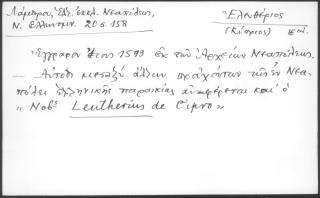 Λάμπρου, Ἑλλ. ἐκκλ. Νεαπόλεως,
Ν. Ἑλληνομν. 20 σ. 158
Ἐλευθέριος
(Κύπριος)
Ἔγγραφον ἔτους 1593 ἐκ τῶν Ἀρχείων Νεαπόλεως.
— Αὐτόθι μεταξὺ ἄλλων προὐχόντων τῆς ἐν Νεα-
πόλει ἑλληνικῆς παροικίας ἀναφέρεται καὶ ὁ
"Nob. Leutherius de Cipro"